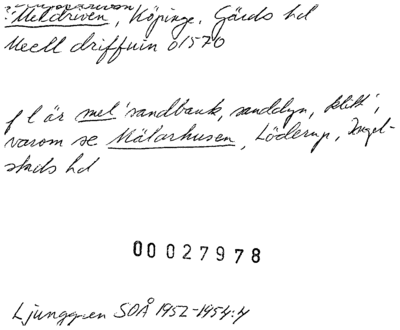 ? Meldriven, Köpinge, Gärds hd
Meell driffuin o1570
f l är mel 'sandbank, sanddyn, klitt',
varom se Mälarhusen, Löderup, Ingel-
stads hd
00027978
Ljunggren SOÅ 1952-1954:4